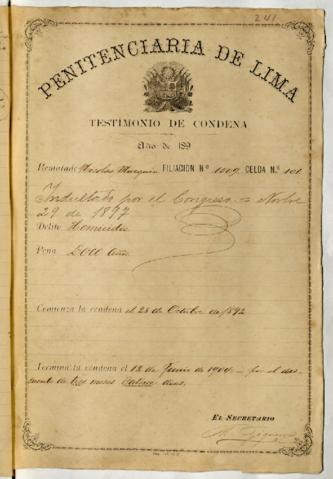 241
PENITENCIARIA DE LIMA
TESTIMONIO DE CONDENA
Año de 189
Rematado Nicolas Marquina FILIACION Nº 1109 CELDA N.º 101
Indultado por el Congreso = Novbre
29 de 1897
Delito Homicidio
Pena Doce Años
Comienza la condena el 28 de Octubre de 1892
Termina la condena el 12 de Junio de 1904 – por el des
cuento de tres meses catorce dias.
EL SECRETARIO